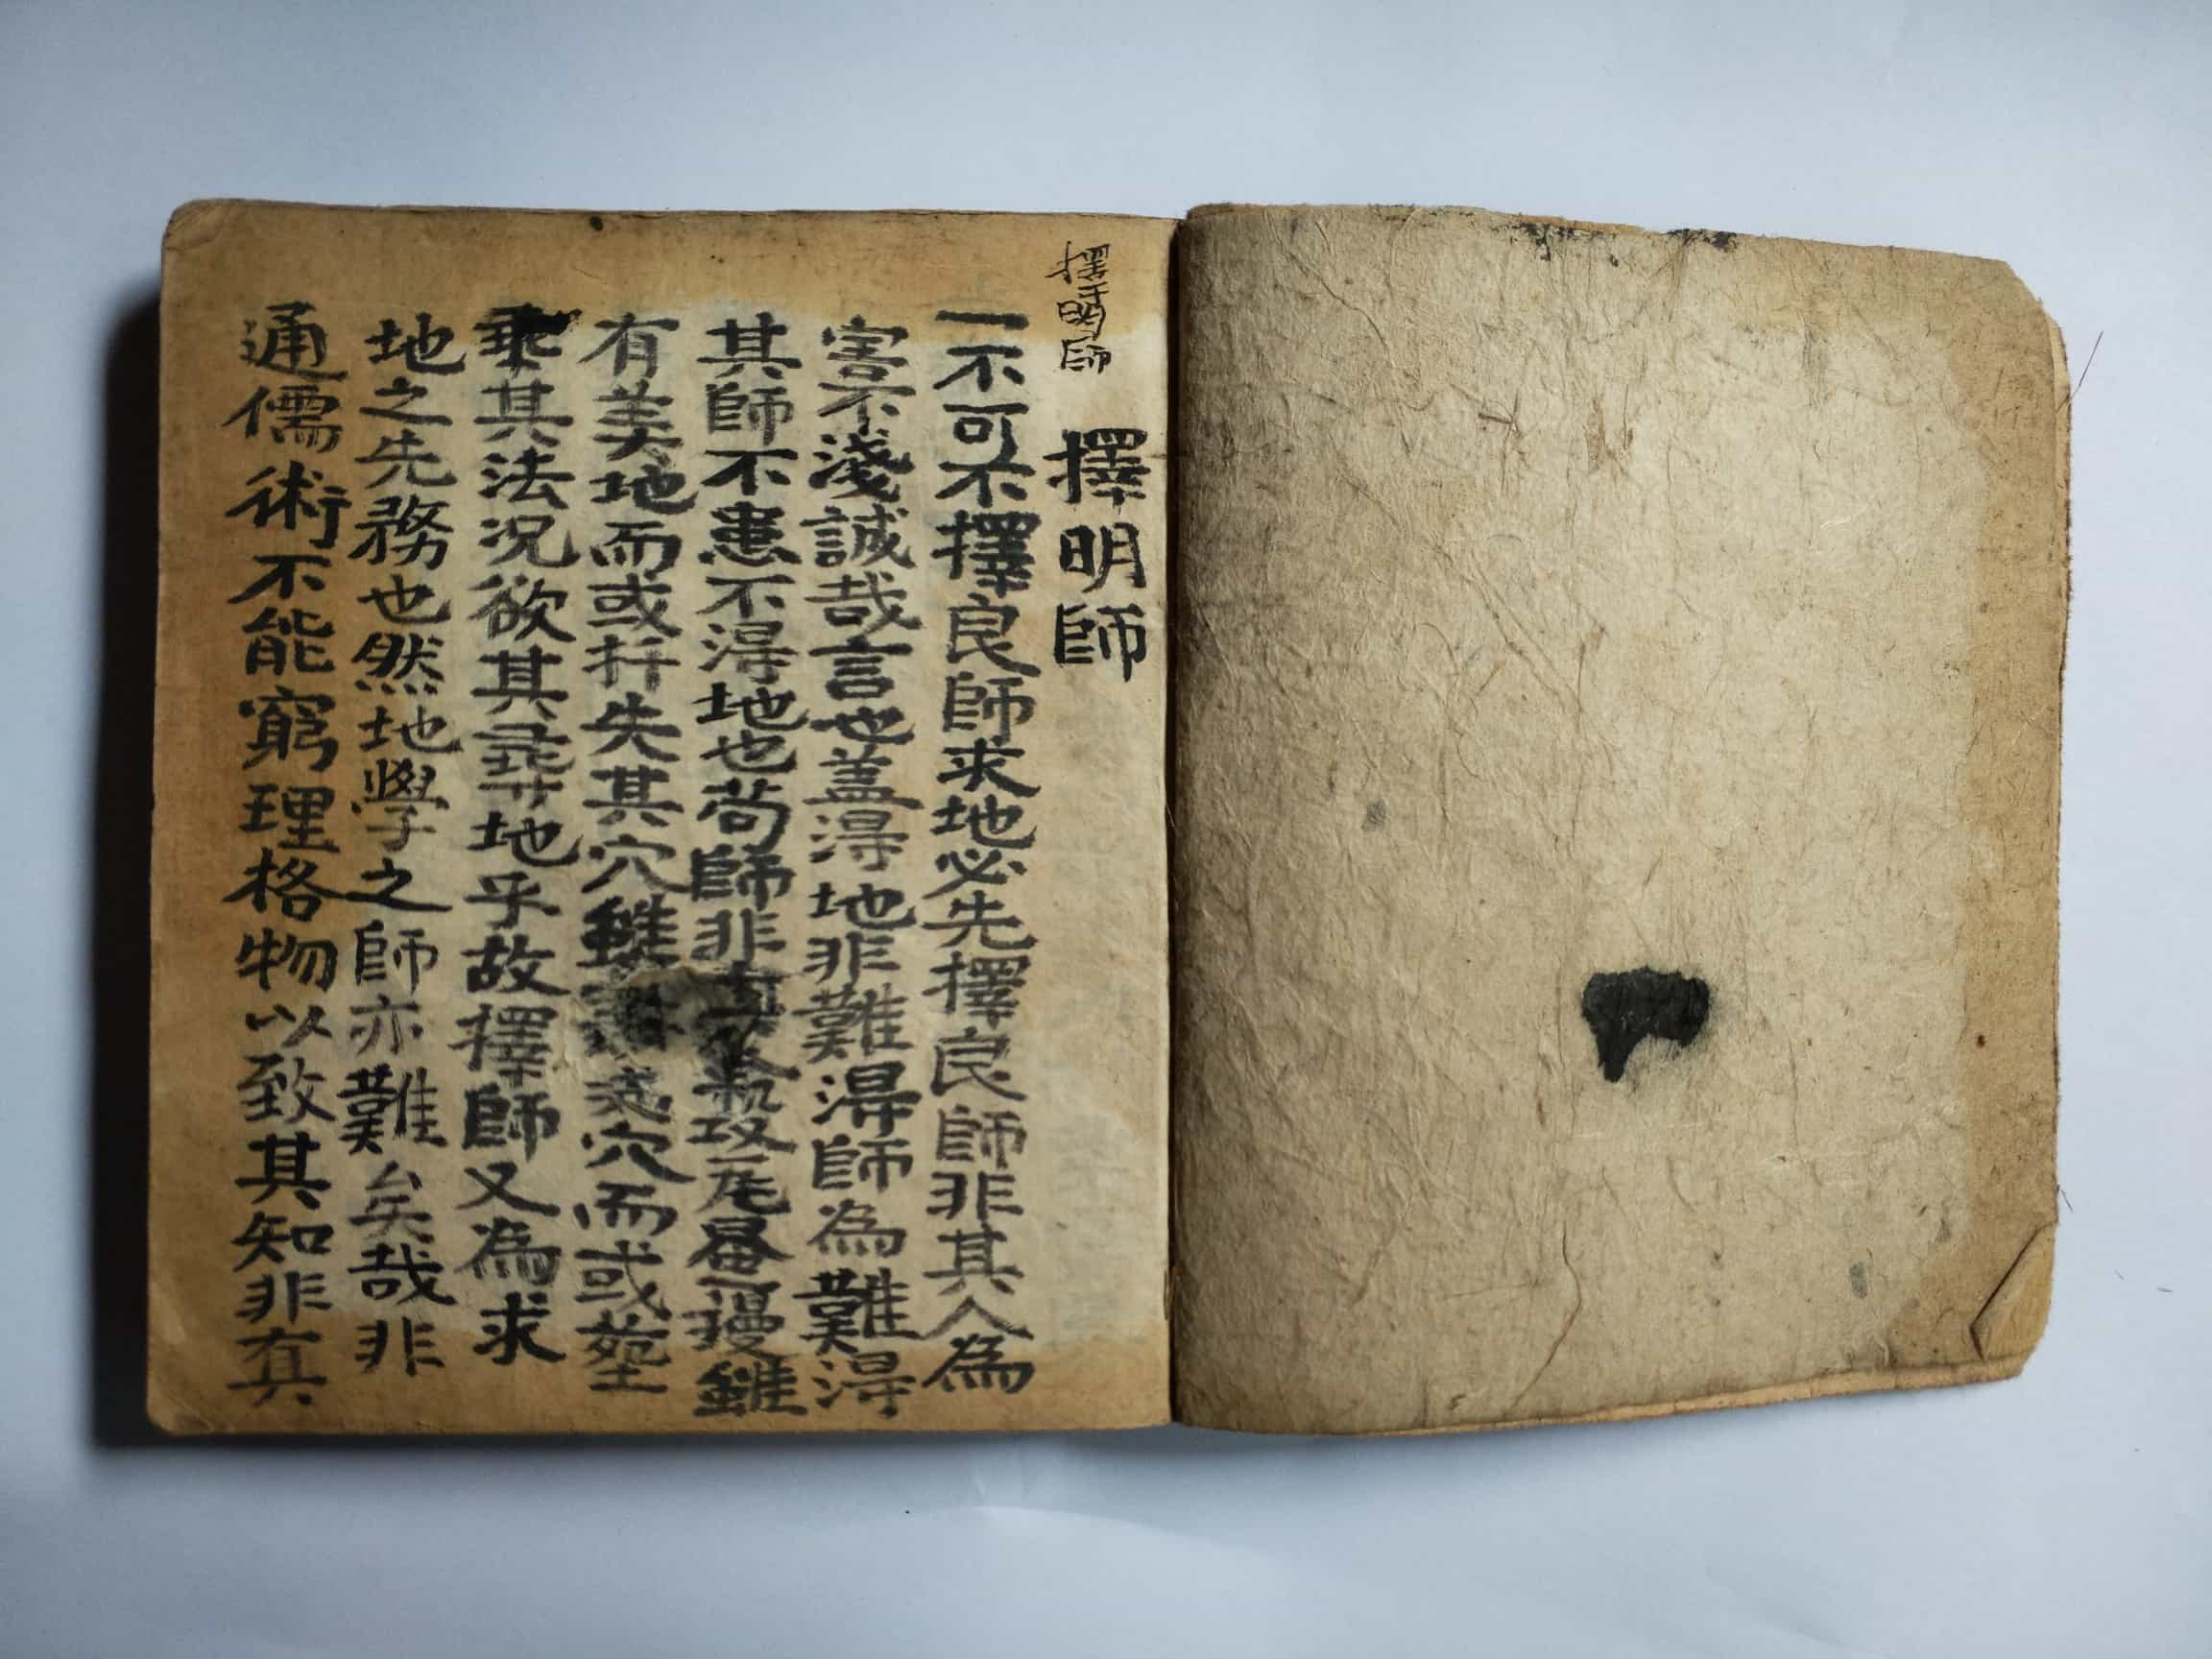 擇明師
擇明師
一不可不擇良師求地必先擇良師非其人為
害不淺誠哉言也盖淂地非難淂師為難淂
其師不患不淂地也苟師非
有美地而或扦失其穴雖穴而或塟
乗其法况欲其尋地乎故擇師又為求
地之先務也然地學之師亦難矣哉非
通儒術不能窮理格物以致其知非有真